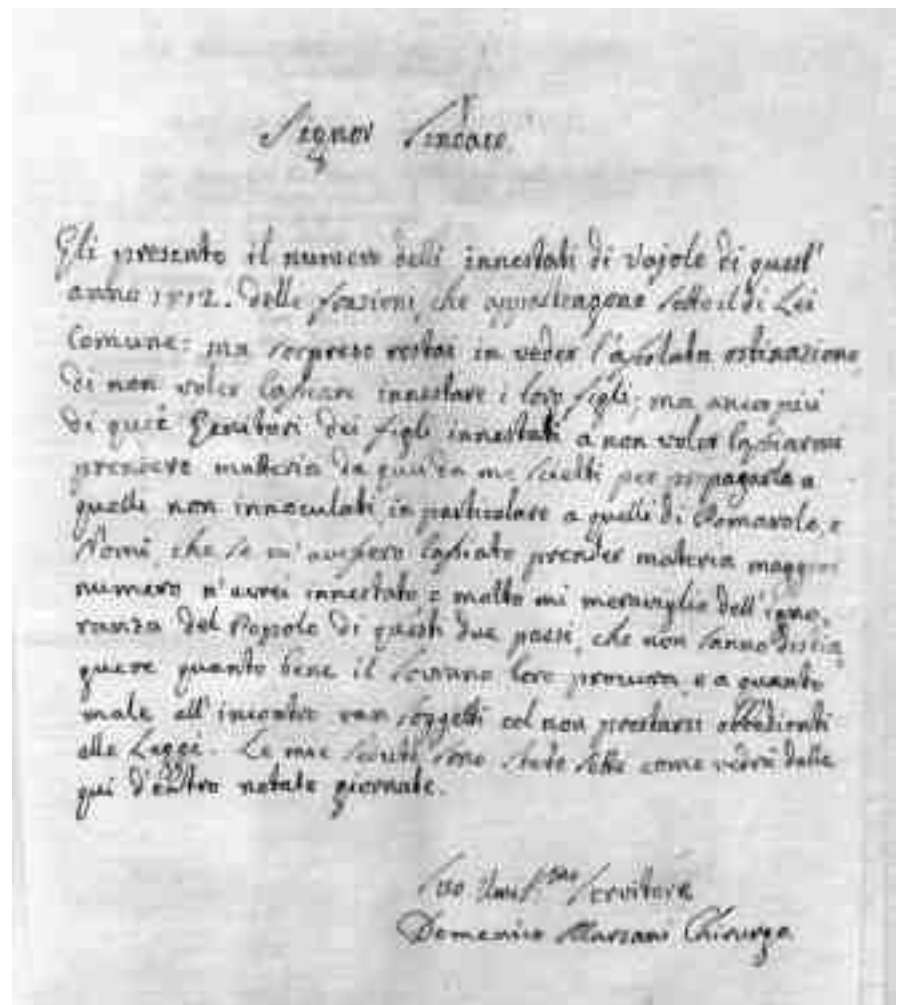 Signor Sindaco.
Gli presento il numero delli innestati di Vajole di quest'
anno 1812. delle frazioni, che appartengono sotto il di Lei
Comune: ma sorpreso restai in veder l'assoluta ostinazione
di non voler lasciare innestare i loro figli; ma ancor più
di quei Genitori dei figli innestati a non voler lasciarmi
prendere matteria da quei da me scielti per propagarla a
quelli non innoculati, in particolare a quelli di Pomarolo, e
Nomi, che se m'avessero lasciato prender materia maggior
numero n'avrei innestato e molto mi meraviglio dell'igno,
ranza del Popolo di questi due paesi, che non sanno distin
guere quanto bene il Sovrano loro procura, e a quanto
male all'incontro van soggetti col non prestarsi obbedienti
alle Leggi. Le mie sono state sette come vedrà dalle
qui d'entro notate giornate.
Suo Umil.mo Servitore
Domenico Marzani Chirurgo